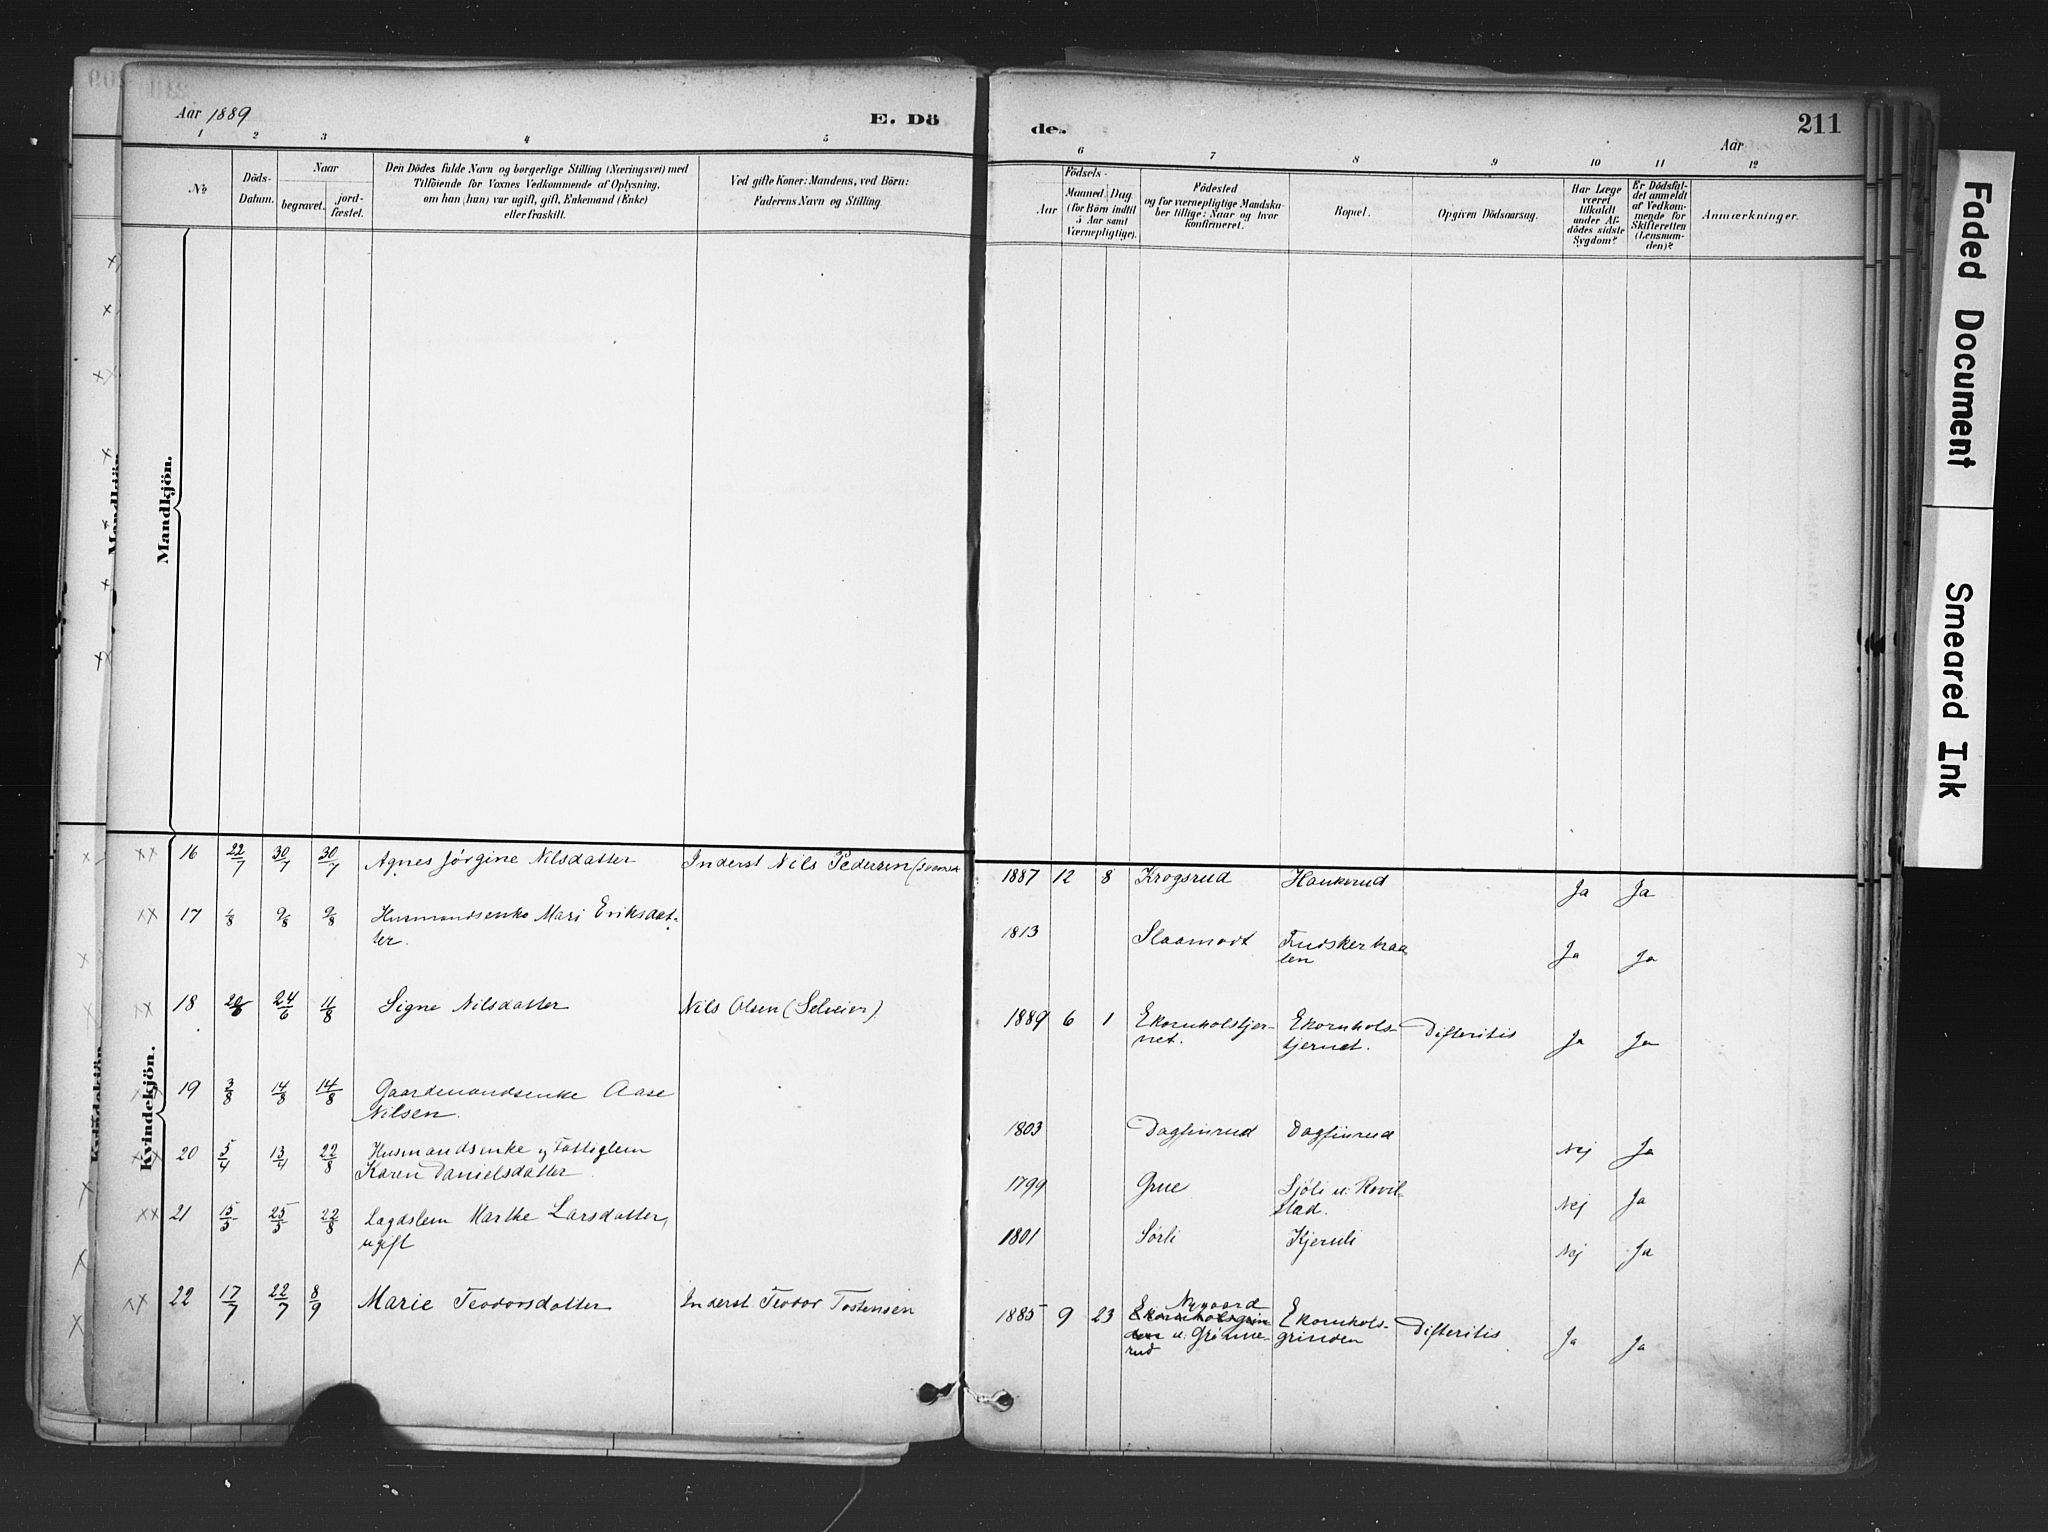 Aar 1889
E. Dö
de.
Aar
211
1 2 3 4 5 6 7 8 9 10 11 12
No
Döds-
Datum.
Naar
begravet.
jord-
fæstet.
Den Dödes fulde Navn og borgerlige Stilling (Næringsvei) med
Tilföiende for Voxnes Vedkommende af Oplysning,
om han (hun) var ugift, gift, Enkemand (Enke)
eller fraskilt.
Ved gifte Koner: Mandens, ved Börn:
Faderens Navn og Stilling
Födsels-
Aar
Maaned Dag
(for Börn indtil
5 Aar samt
Værnepligtige).
Födested
og for værnepligtige Mandska-
ber tillige: Naar og hvor
konfirmeret.
Bopæl.
Opgiven Dödsaarsag.
Har Læge
været
tilkaldt
under Af-
dödes sidste
Sygdom?
Er Dödsfal-
det anmeldt
af Vedkom-
mende for
Skifteretten
(Lensman-
den)?
Anmærkninger.
Mandkjön.
Kvindekjön.
16 22/7 30/7 30/7 Agnes Jørgine Nilsdatter Inderst Nils Pedersen (svensk 1887 12 8 Krogsrud Haukerud Ja Ja
17 1/8 9/8 9/8 Husmandsenke Mari Eriksdat-
ter. 1813 Slaamodt Ja Ja
18 24/6 11/8 Signe Nilsdatter Nils Olsen (Selveier) 1889 6 1 Ekornholstjer- Ekornhols- Difteritis Ja Ja
net. tjernet.
19 3/8 14/8 14/8 Gaardmandsenke Aase
Nilsen. 1803 Dagfinrud Dagfinrud Nej Ja
20 5/4 13/4 22/8 Husmandsenke og Fattiglem
Karen Danielsdatter. 1799 Grue Nej Ja
21 15/5 25/5 22/8 Lægdslem Marthe Larsdatter,
ugift 1801 Sørli Kjernli Nej Ja
22 17/7 22/7 8/9 Marie Teodorsdatter Inderst Teodor Tostensen 1885 9 23 Nygaard Ekornhols- Difteritis Ja Ja
Ekornholsgrin
den u. Grønne- grinden
rud
Faded Document
Smeared Ink